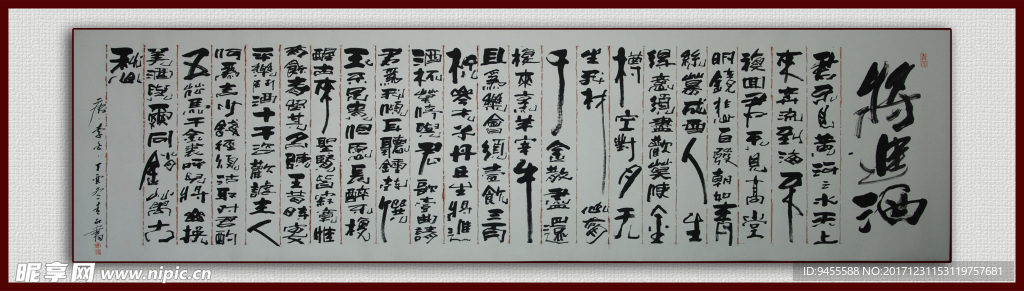 將進酒
君不見黃河之水天上
來奔流到海不
復回君不見高堂
明鏡悲白發朝如青
絲暮成雪人生
得意須盡歡莫使金
樽空對月天
生我材
千金散盡還
復來烹羊宰牛
且為樂會須一飲三百
杯岑夫子丹丘生將進
酒杯莫停與君歌一曲請
君為我傾耳聽鐘鼓饌
玉不足貴但愿長醉不復
醒古來聖賢皆寂寞惟
有飲者留其名陳王昔時宴
平樂斗酒十千恣歡謔主人
何為言少錢徑須沽取對君酌
五花馬千金裘呼兒將出換
美酒與爾同銷萬古
愁
唐李白
昵享网 www.nipic.cn
ID:9455588 NO:20171231153119757681